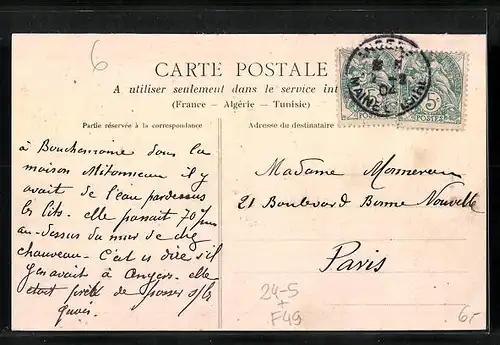 6
CARTE POSTALE
A utiliser seulement dans le service int
(France - Algérie - Tunisie)
Partie réservée à la correspondance
Adresse du destinataire
ANGERS
04
MAINE ET LOIRE
5c
POSTES
à Bouchemaine dans la
maison il y
avait de l'eau par dessus
les lits. elle passait 70
au-dessus du mur de chez
chauveau. C'est à dire s'il
y avait à Angers. elle
était prête de passer s/ les
quais.
Madame
21 Boulevard Bonne Nouvelle
Paris
24-5
+
F49